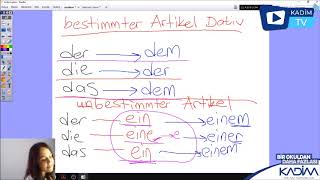 bestimmter Artikel Dativ
der → dem
die → der
das → dem
unbestimmter Artikel
der — ein → einem
die — eine → einer
das — ein → einem
KADİM
TV
BİR OKULDAN
DAHA FAZLASI
KADİM